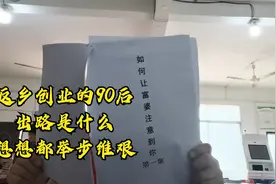 返乡创业的90后
出路是什么
想想都举步维艰
如何让富婆注意到你
第一集